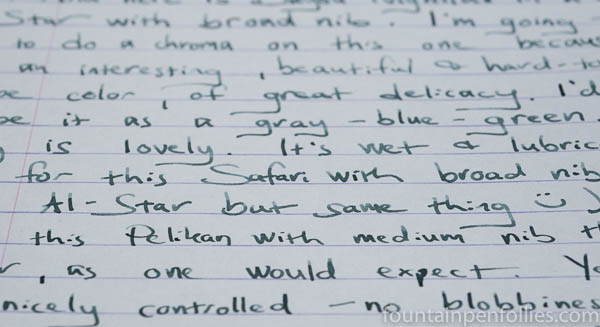 Star with broad nib. I'm going
to do a chroma on this one becaus
an interesting, beautiful & hard-to
be color, of great delicacy. I'd
be it as a gray-blue-green.
g is lovely. It's wet & lubric
for this Safari with broad nib
Al-Star but same thing ☺
this Pelikan with medium nib th
r, as one would expect. Yo
nicely controlled - no blobbines
fountainpenfollies.com